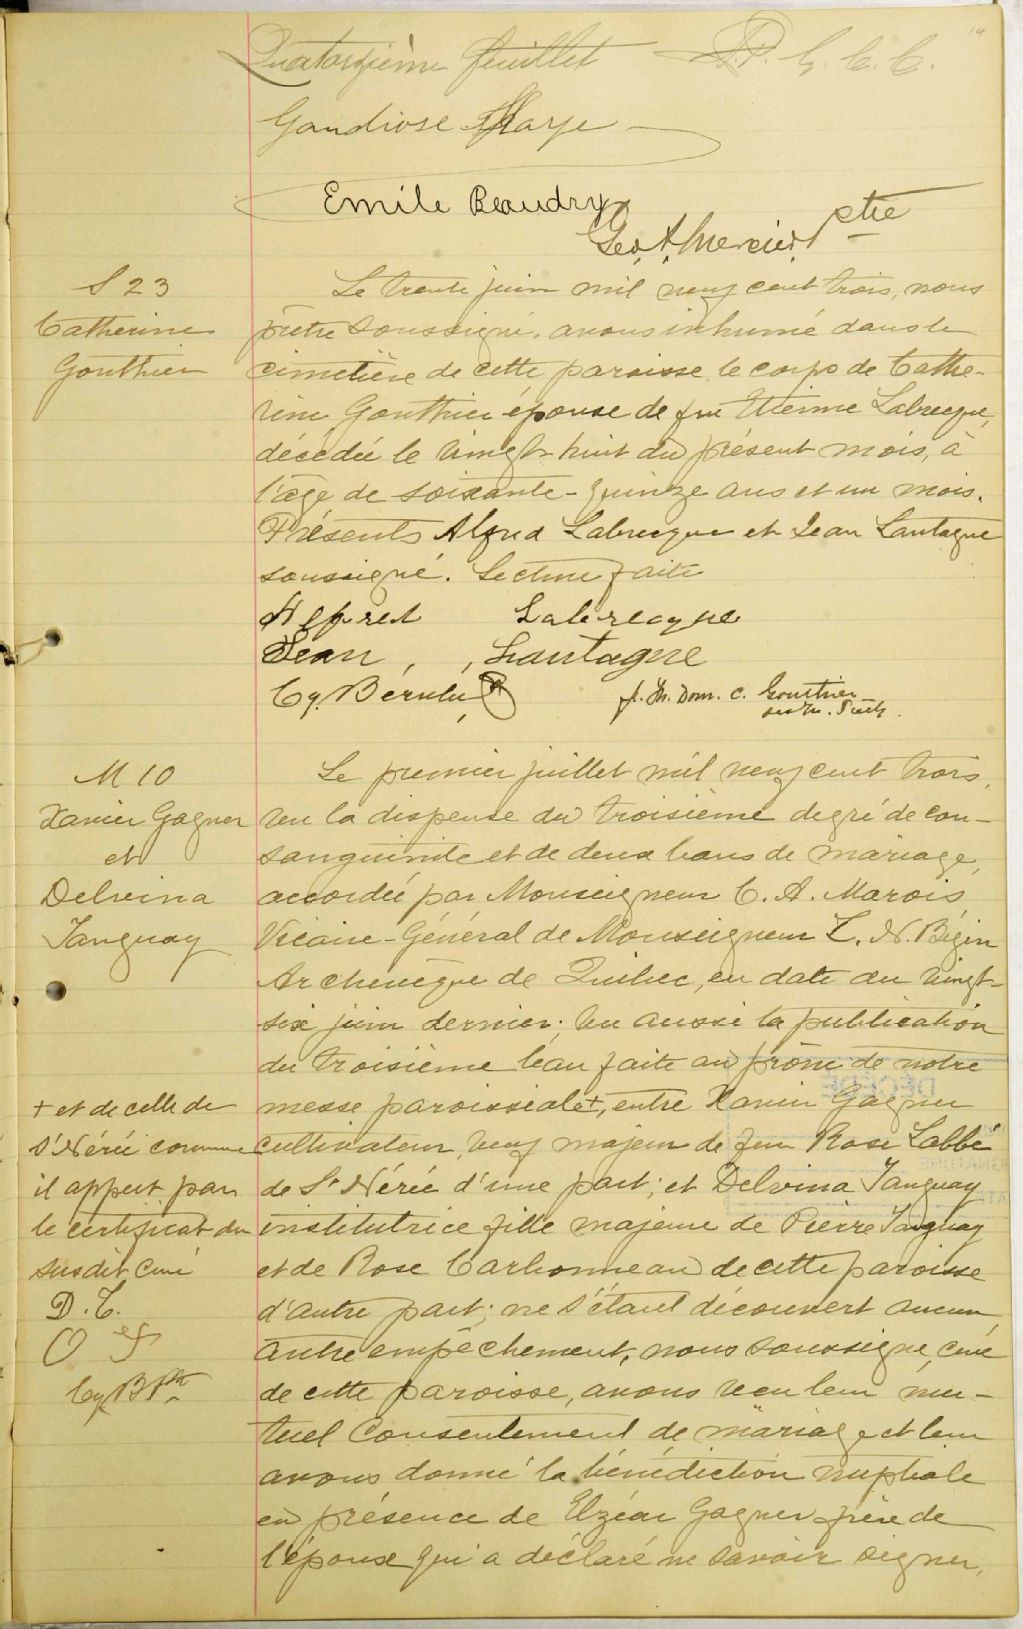 14
Quatorzième feuillet P. G. C. C.
Gaudiose
Emile Beaudry
Geo. A. Mercier Ptre
S 23
Catherine
Gouthier
Le trente juin mil neuf cent trois, nous
prêtre soussigné, avons inhumé dans le
cimetière de cette paroisse le corps de Cathe-
rine Gouthier épouse de feu Etienne Labrecque,
décédée le vingt-huit du présent mois, à
l'âge de soixante-quinze ans et un mois.
Présents Alfred Labrecque et Jean Lantagne
soussigné. Lecture faite
Alfred Labrecque
Jean Lantagne
Cy. Bérubé
fr. Th. Dom. C. Gouthier
M 10
Xavier Gagner
et
Delvina
Tanguay
Le premier juillet mil neuf cent trois,
vu la dispense du troisième degré de con-
sanguinité et de deux bans de mariage,
accordée par Monseigneur C. A. Marois
Vicaire-Général de Monseigneur L. N. Bégin
Archevêque de Québec, en date du vingt-
six juin dernier; vu aussi la publication
du troisième ban faite au prône de notre
messe paroissiale +, entre Xavier Gagner
cultivateur, veuf majeur de feu Rose Labbé
de St Nérée d'une part; et Delvina Tanguay
institutrice fille majeure de Pierre Tanguay
et de Rose Carbonneau de cette paroisse
d'autre part; ne s'étant découvert aucun
autre empêchement, nous soussigné, curé
de cette paroisse, avons reçu leur mu-
tuel consentement de mariage et leur
avons donné la bénédiction nuptiale
en présence de Elzéar Gagner frère de
l'épouse qui a déclaré ne savoir signer,
+ et de celle de
St Nérée comme
il appert par
le certificat du
susdit curé
D. T.
Cy B Ptre
DÉCÉDÉ